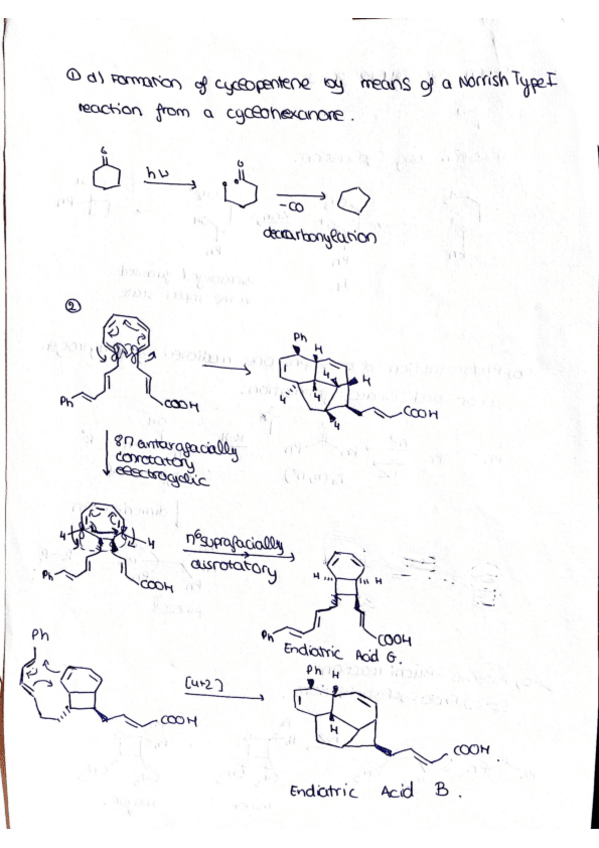 ① d) Formation of cyclopentene by means of a Norrish Type I
reaction from a cyclohexanone.
O
hν
O
-CO
decarbonylation
②
Ph
COOH
Ph
H
H
4
4
4
4
COOH
8π antarafacially
conrotatory
electrocyclic
4
4
Ph
COOH
π6 suprafacially
disrotatory
H
H
Ph
COOH
Endiatric Acid G.
Ph
COOH
[4+2]
Ph
H
H
COOH
Endiatric Acid B.